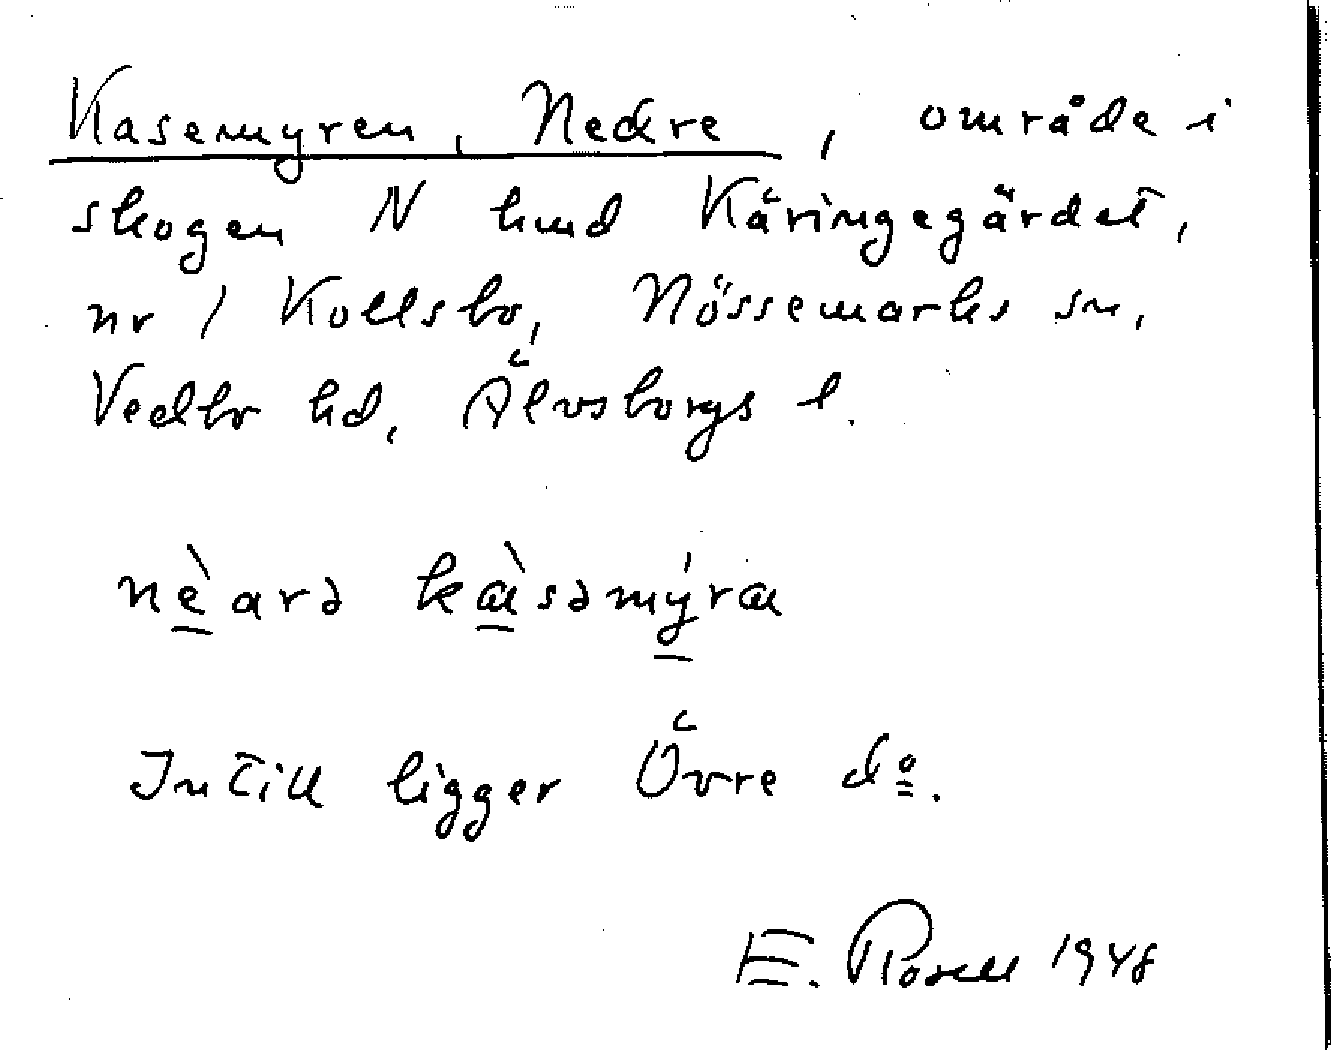 Kasemyren, Nedre, område i
skogen N hmd Käringegärdet,
nr 1 Kollsbo, Nössemarks sn,
Vedbo hd, Älvsborgs l.
nèarə kɑ̀səmýrɑ
Intill ligger Övre dº.
E. Rosell 1948